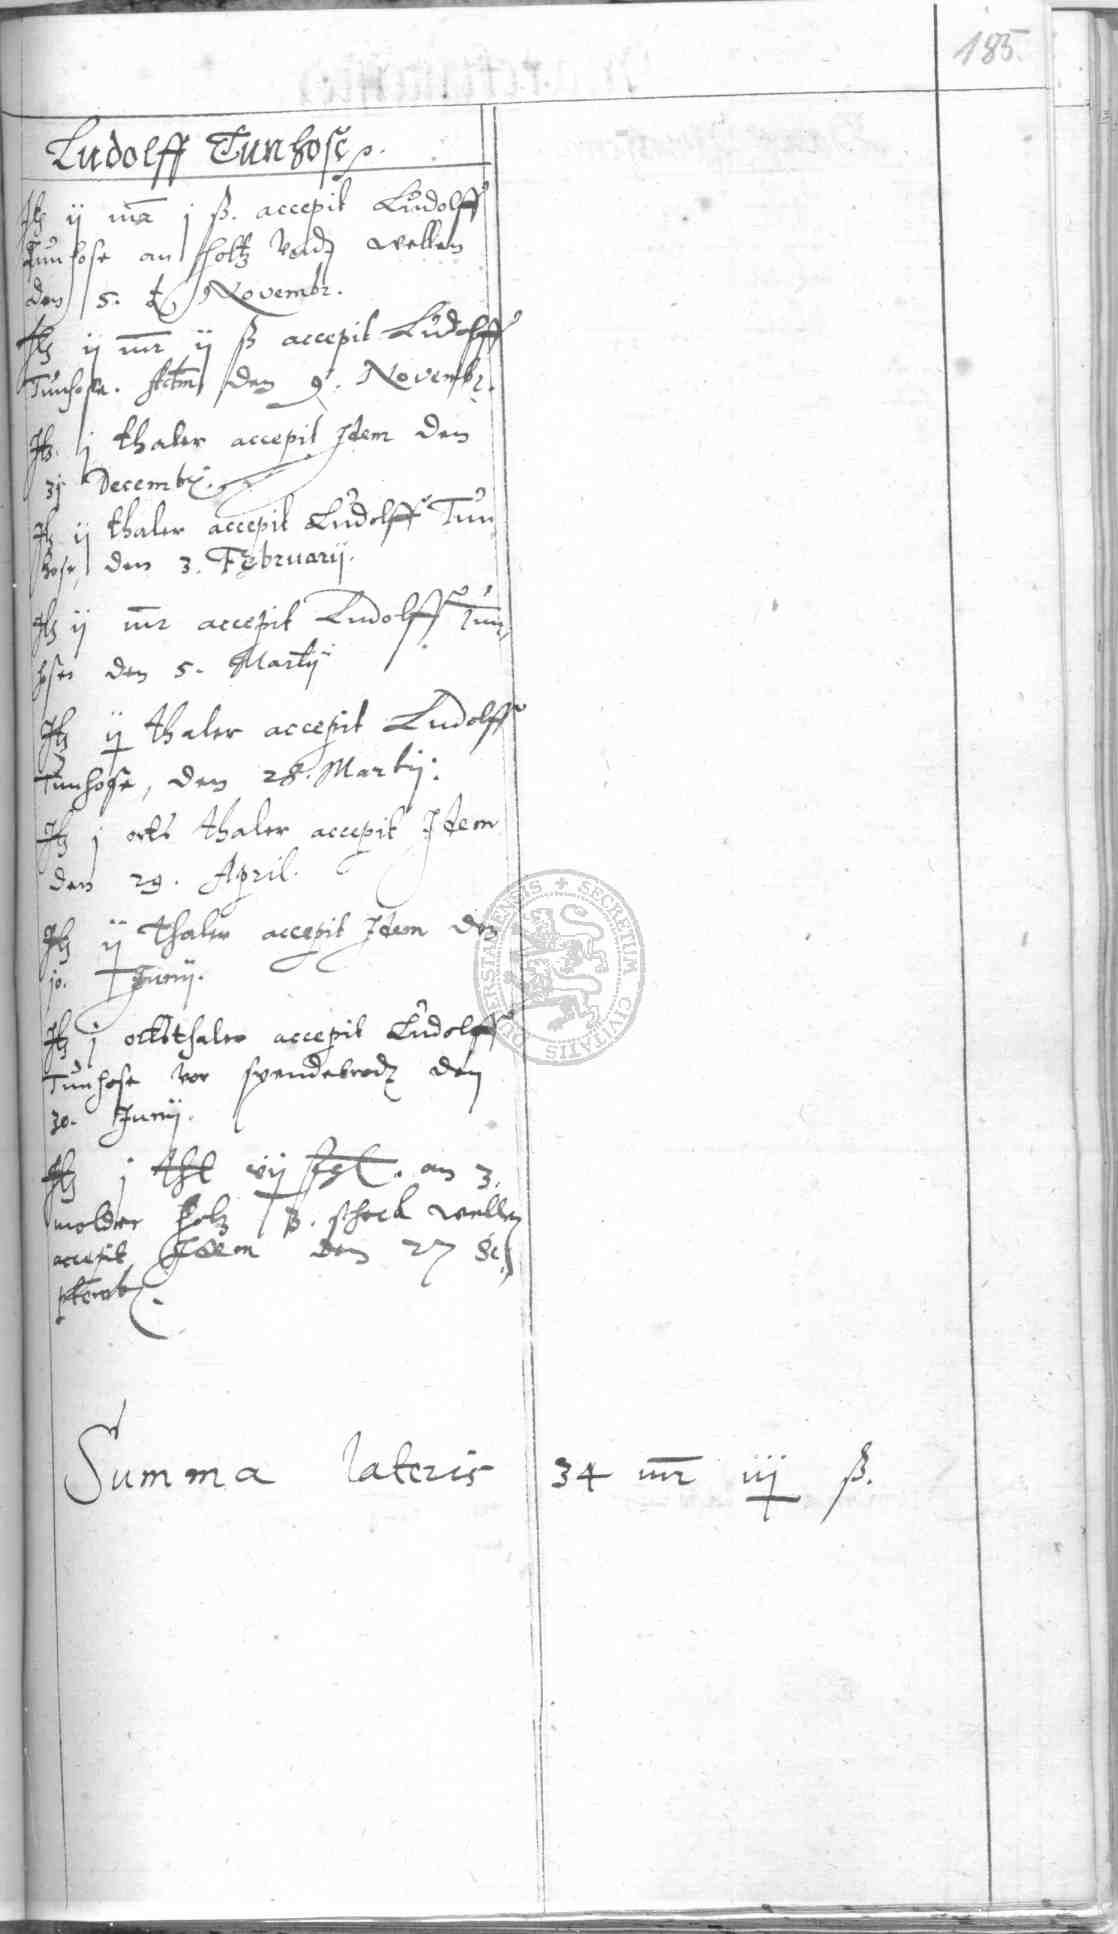 185.
Ludolff Tunhose.
Itz ij mr j ß. accepit Ludolff
Tunhose an holtz vndt wellen
den 5. Novembr.
Itz ij mr ij ß accepit Ludolff
Tunhose. Actum den 9. Novembr.
Itz j thaler accepit Idem den
31 Decembr.
Itz ij thaler accepit Ludolff Tun
hose, den 3. Februarij.
Itz ij mr accepit Ludolff Tun
hose den 5. Martij
Itz ij thaler accepit Ludolff
Tunhose, den 28. Martij.
Itz j orts thaler accepit Idem
den 29. April.
Itz ij thaler accepit Idem den
10. Junij.
Itz j ortsthaler accepit Ludolff
Tunhose vor spendebrodt den
30. Junij.
Itz j thl vij an 3.
molder holtz 3. schock wellen
accepit Idem den 27 Se
ptembr.
Summa lateris 34 mr iij ß.
SECRETUM CIVITATIS DUDERSTADENSIS